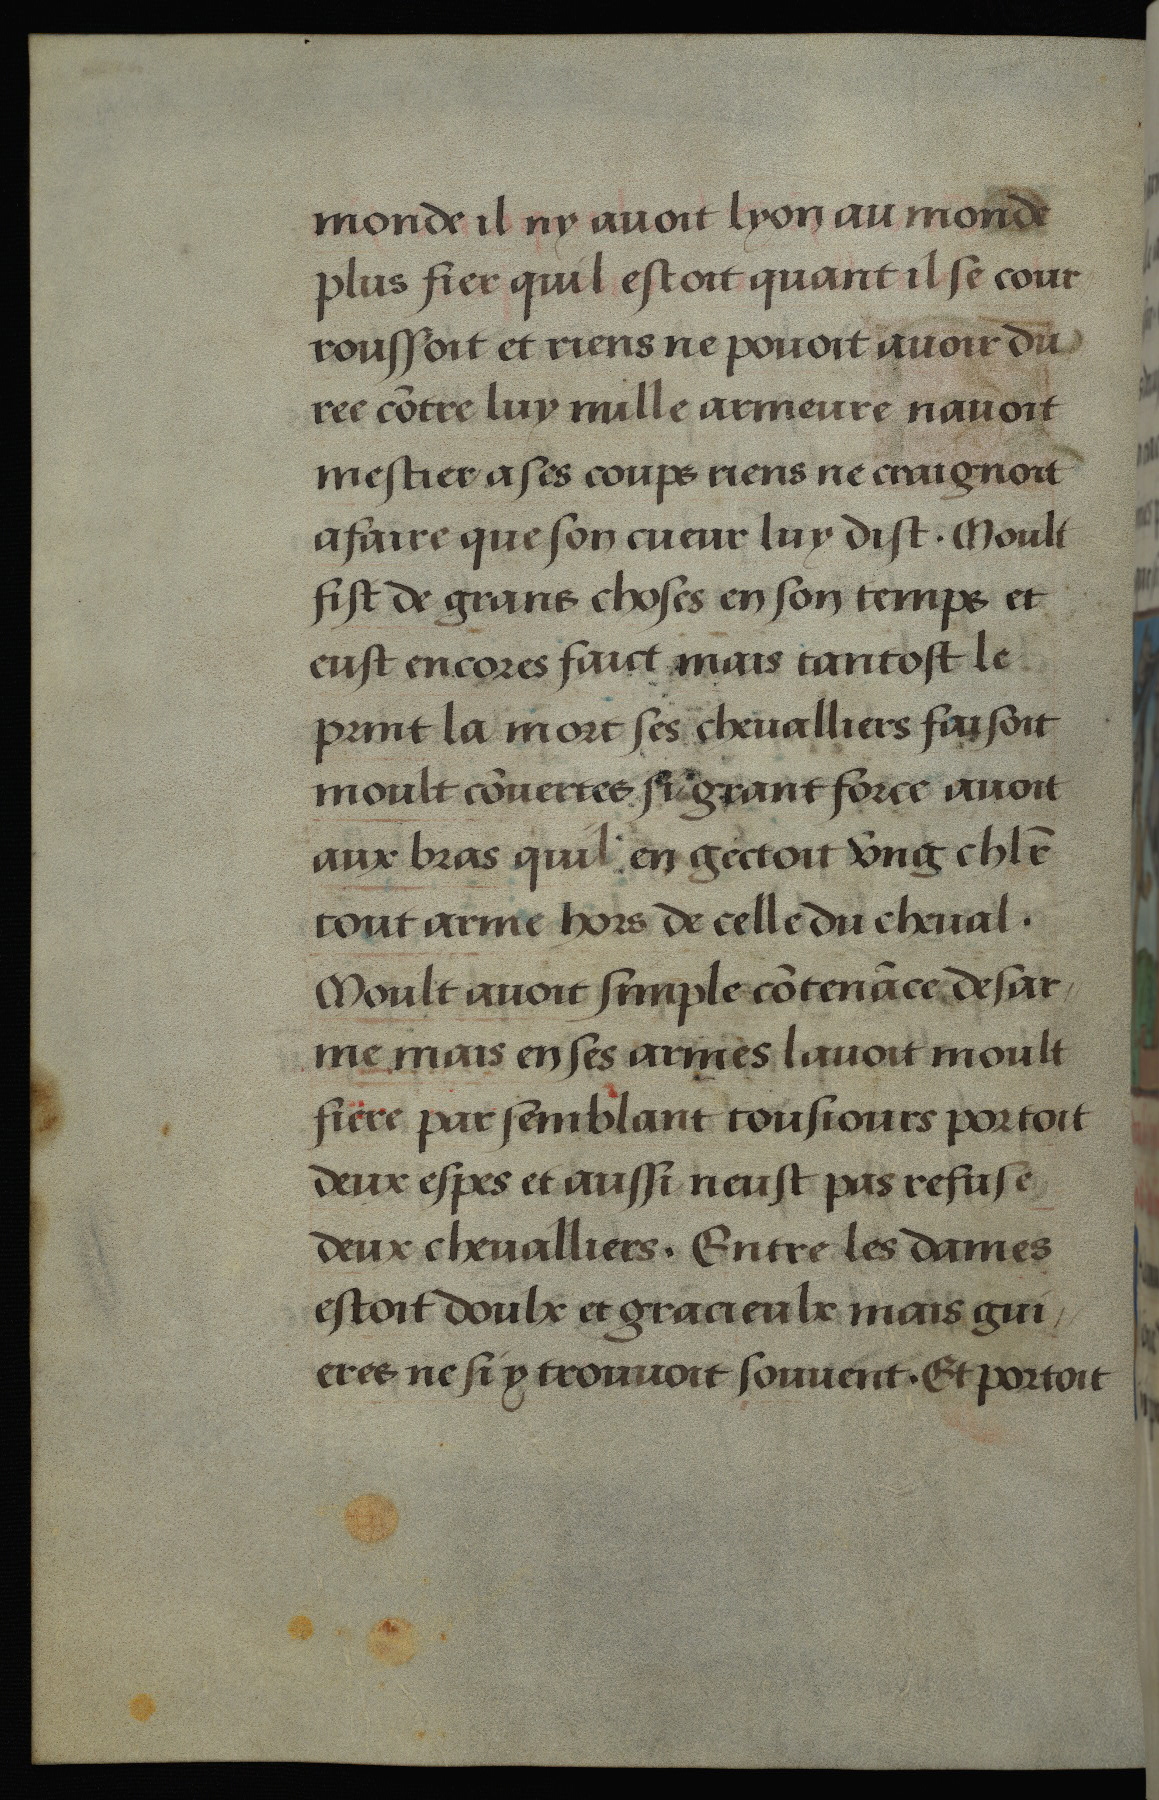 monde il ny auoit lyon au monde
plus fier quil estoit quant il se cour
roussoit et riens ne pouoit auoir du
ree cõtre luy mille armeure nauoit
mestier a ses coups riens ne craignoit
a faire que son cueur luy dist. Moult
fist de grans choses en son temps et
eust encores faict mais tantost le
print la mort ses cheualliers faisoit
moult cõuertes si grant force auoit
aux bras quil en gectoit vng chlr̃
tout arme hors de celle du cheual.
Moult auoit simple cõtenãce desar/
me mais en ses armes lauoit moult
fiere par semblant tousiours portoit
deux espes et aussi neust pas refuse
deux cheualliers. Entre les dames
estoit doulx et gracieulx mais gui/
eres ne si y trouuoit souuent. Et portoit